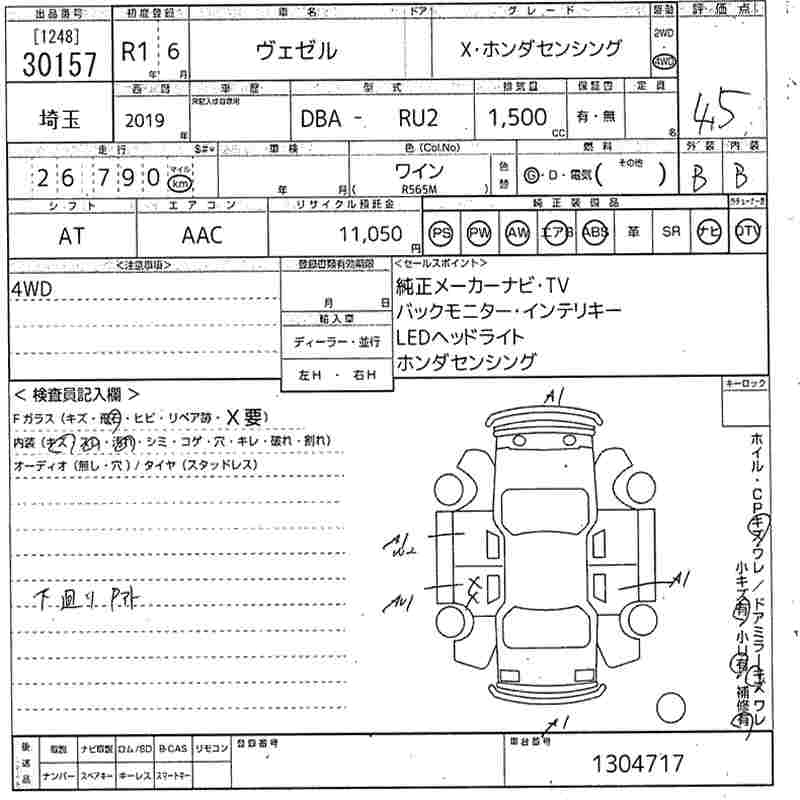 出品番号 初度登録 車名 ドア グレード 駆動 評価点
[1248] 30157 R1年 6月 ヴェゼル X・ホンダセンシング 2WD・4WD 4.5
西暦 車歴 型式 排気量 保証書 定員
埼玉 2019年 DBA - RU2 1,500cc 有・無 名
走行 S#* 車検 色(Col.No) 色替 燃料 外装 内装
26790 マイル km 年 月 ワイン ( R565M ) G・D・電気( その他 ) B B
シフト エアコン リサイクル預託金 純正装備品
AT AAC 11,050円 PS PW AW エアB ABS 革 SR ナビ TV
<注意事項> 登録書類有効期限 <セールスポイント>
4WD 月 日 純正メーカーナビ・TV
バックモニター・インテリキー
輸入車 LEDヘッドライト
ディーラー・並行 ホンダセンシング
左H ・ 右H
キーロック
< 検査員記入欄 >
Fガラス(キズ・飛石・ヒビ・リペア跡・X要)
内装(キズ・汚れ・シミ・コゲ・穴・キレ・破れ・割れ)
オーディオ(無し・穴)/タイヤ(スタッドレス)
下回り
A1
A1
A1
A1
ホイル・CPキズワレ/ドアミラーキズワレ
小キズ有/小U有/補修有
後送品 取説 ナビ取説 ロム/SD B-CAS リモコン 登録番号 車台番号
ナンバー スペアキー キーレス スマートキー 1304717